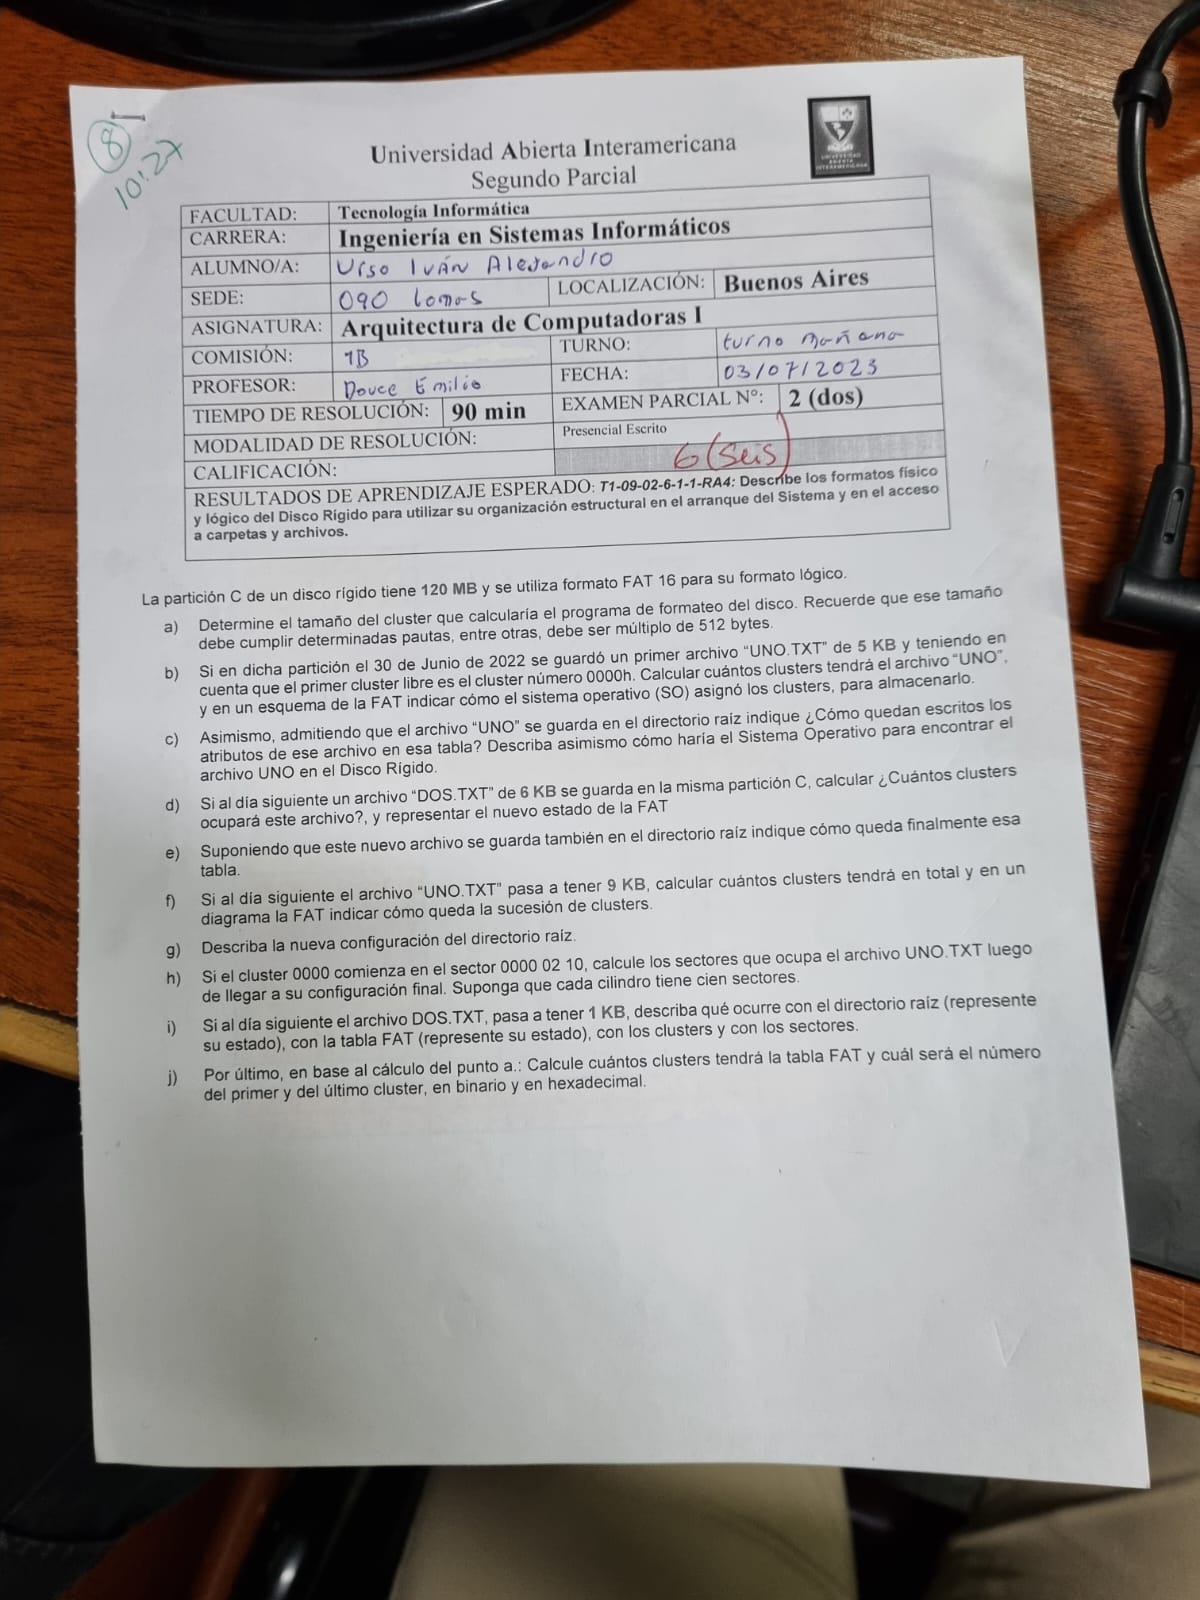 8
10:27
Universidad Abierta Interamericana
Segundo Parcial
UNIVERSIDAD
ABIERTA
INTERAMERICANA
FACULTAD: Tecnología Informática
CARRERA: Ingeniería en Sistemas Informáticos
ALUMNO/A: Urso Iván Alejandro
SEDE: 090 Lomas LOCALIZACIÓN: Buenos Aires
ASIGNATURA: Arquitectura de Computadoras I
COMISIÓN: 1B TURNO: turno mañana
PROFESOR: Douce Emilio FECHA: 03/07/2023
TIEMPO DE RESOLUCIÓN: 90 min EXAMEN PARCIAL Nº: 2 (dos)
MODALIDAD DE RESOLUCIÓN: Presencial Escrito
CALIFICACIÓN: 6 (seis)
RESULTADOS DE APRENDIZAJE ESPERADO: T1-09-02-6-1-1-RA4: Describe los formatos físico
y lógico del Disco Rígido para utilizar su organización estructural en el arranque del Sistema y en el acceso
a carpetas y archivos.
La partición C de un disco rígido tiene 120 MB y se utiliza formato FAT 16 para su formato lógico.
a) Determine el tamaño del cluster que calcularía el programa de formateo del disco. Recuerde que ese tamaño
debe cumplir determinadas pautas, entre otras, debe ser múltiplo de 512 bytes.
b) Si en dicha partición el 30 de Junio de 2022 se guardó un primer archivo “UNO.TXT” de 5 KB y teniendo en
cuenta que el primer cluster libre es el cluster número 0000h. Calcular cuántos clusters tendrá el archivo “UNO”,
y en un esquema de la FAT indicar cómo el sistema operativo (SO) asignó los clusters, para almacenarlo.
c) Asimismo, admitiendo que el archivo “UNO” se guarda en el directorio raíz indique ¿Cómo quedan escritos los
atributos de ese archivo en esa tabla? Describa asimismo cómo haría el Sistema Operativo para encontrar el
archivo UNO en el Disco Rígido.
d) Si al día siguiente un archivo “DOS.TXT” de 6 KB se guarda en la misma partición C, calcular ¿Cuántos clusters
ocupará este archivo?, y representar el nuevo estado de la FAT
e) Suponiendo que este nuevo archivo se guarda también en el directorio raíz indique cómo queda finalmente esa
tabla.
f) Si al día siguiente el archivo “UNO.TXT” pasa a tener 9 KB, calcular cuántos clusters tendrá en total y en un
diagrama la FAT indicar cómo queda la sucesión de clusters.
g) Describa la nueva configuración del directorio raíz.
h) Si el cluster 0000 comienza en el sector 0000 02 10, calcule los sectores que ocupa el archivo UNO.TXT luego
de llegar a su configuración final. Suponga que cada cilindro tiene cien sectores.
i) Si al día siguiente el archivo DOS.TXT, pasa a tener 1 KB, describa qué ocurre con el directorio raíz (represente
su estado), con la tabla FAT (represente su estado), con los clusters y con los sectores.
j) Por último, en base al cálculo del punto a.: Calcule cuántos clusters tendrá la tabla FAT y cuál será el número
del primer y del último cluster, en binario y en hexadecimal.